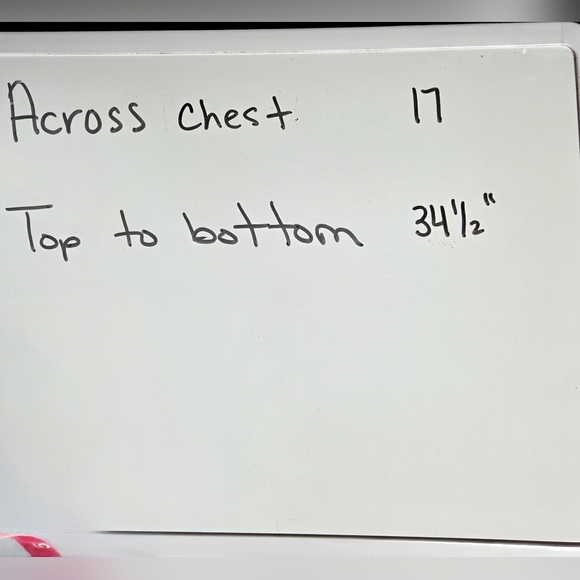 Across chest 17
Top to bottom 34 1/2"